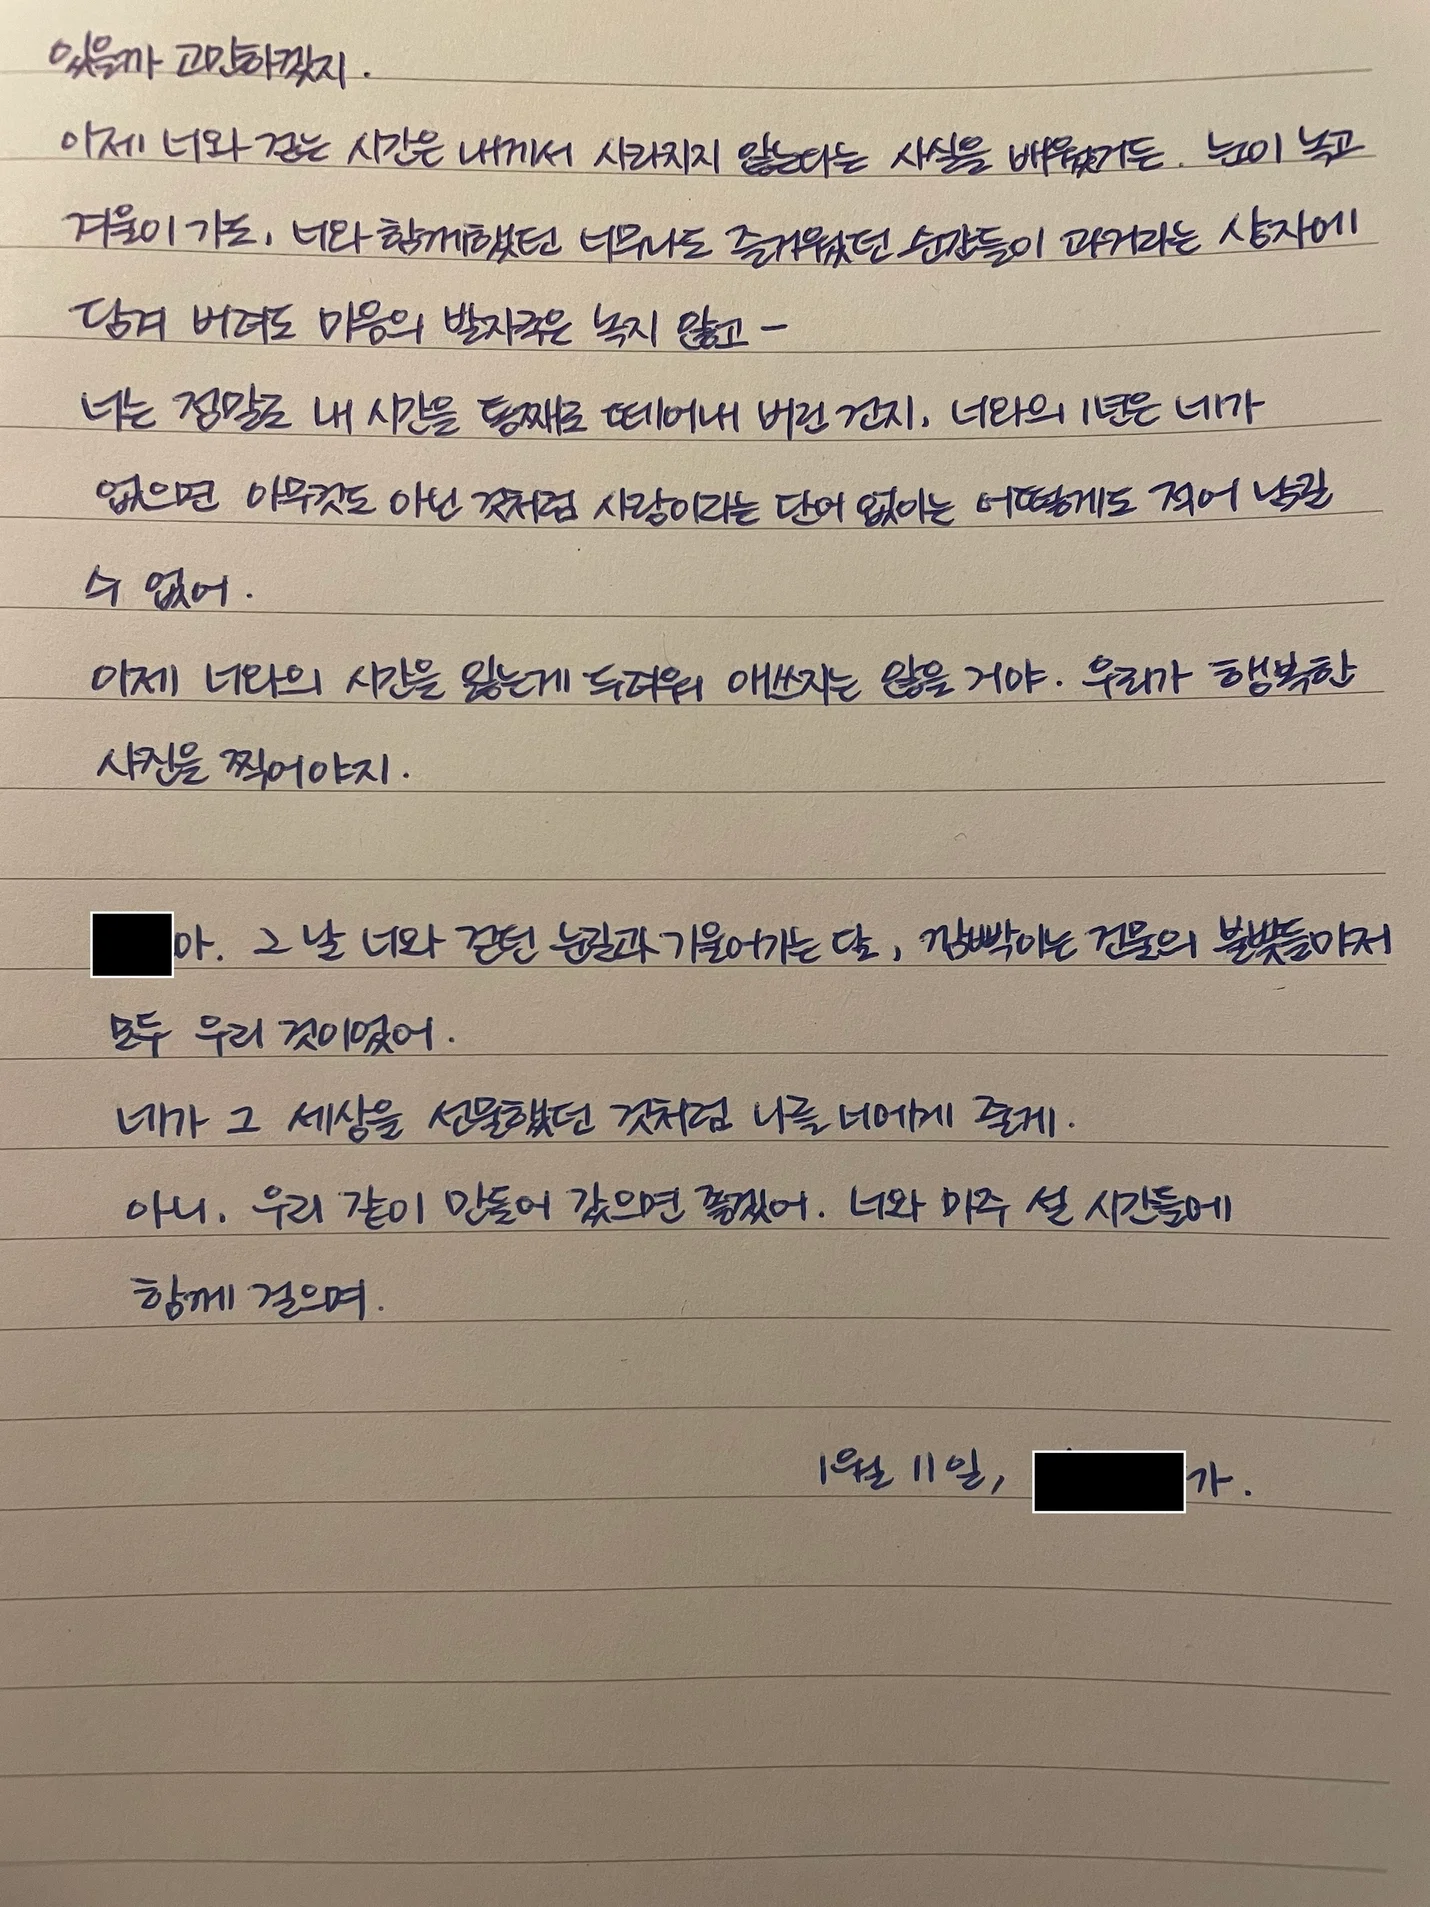 있을까 고민하겠지.
이제 너와 걷는 시간은 내게서 사라지지 않는다는 사실을 배웠거든. 눈이 녹고
겨울이 가도, 너와 함께했던 너무나도 즐거웠던 순간들이 과거라는 상자에
담겨 버려도 마음의 발자국은 녹지 않고-
너는 정말로 내 시간을 통째로 떼어내 버린 건지, 너와의 1년은 네가
없으면 아무것도 아닌 것처럼 사랑이라는 단어 없이는 어떻게도 적어 남길
수 없어.
이제 너와의 시간을 잃는게 두려워 애쓰지는 않을 거야. 우리가 행복한
사진을 찍어야지.
아. 그 날 너와 걷던 눈길과 기울어가는 달, 깜빡이는 건물의 불빛들마저
모두 우리 것이었어.
네가 그 세상을 선물했던 것처럼 나를 너에게 줄게.
아니. 우리 같이 만들어 갔으면 좋겠어. 너와 마주 설 시간들에
함께 걸으며.
1월 11일, 가.